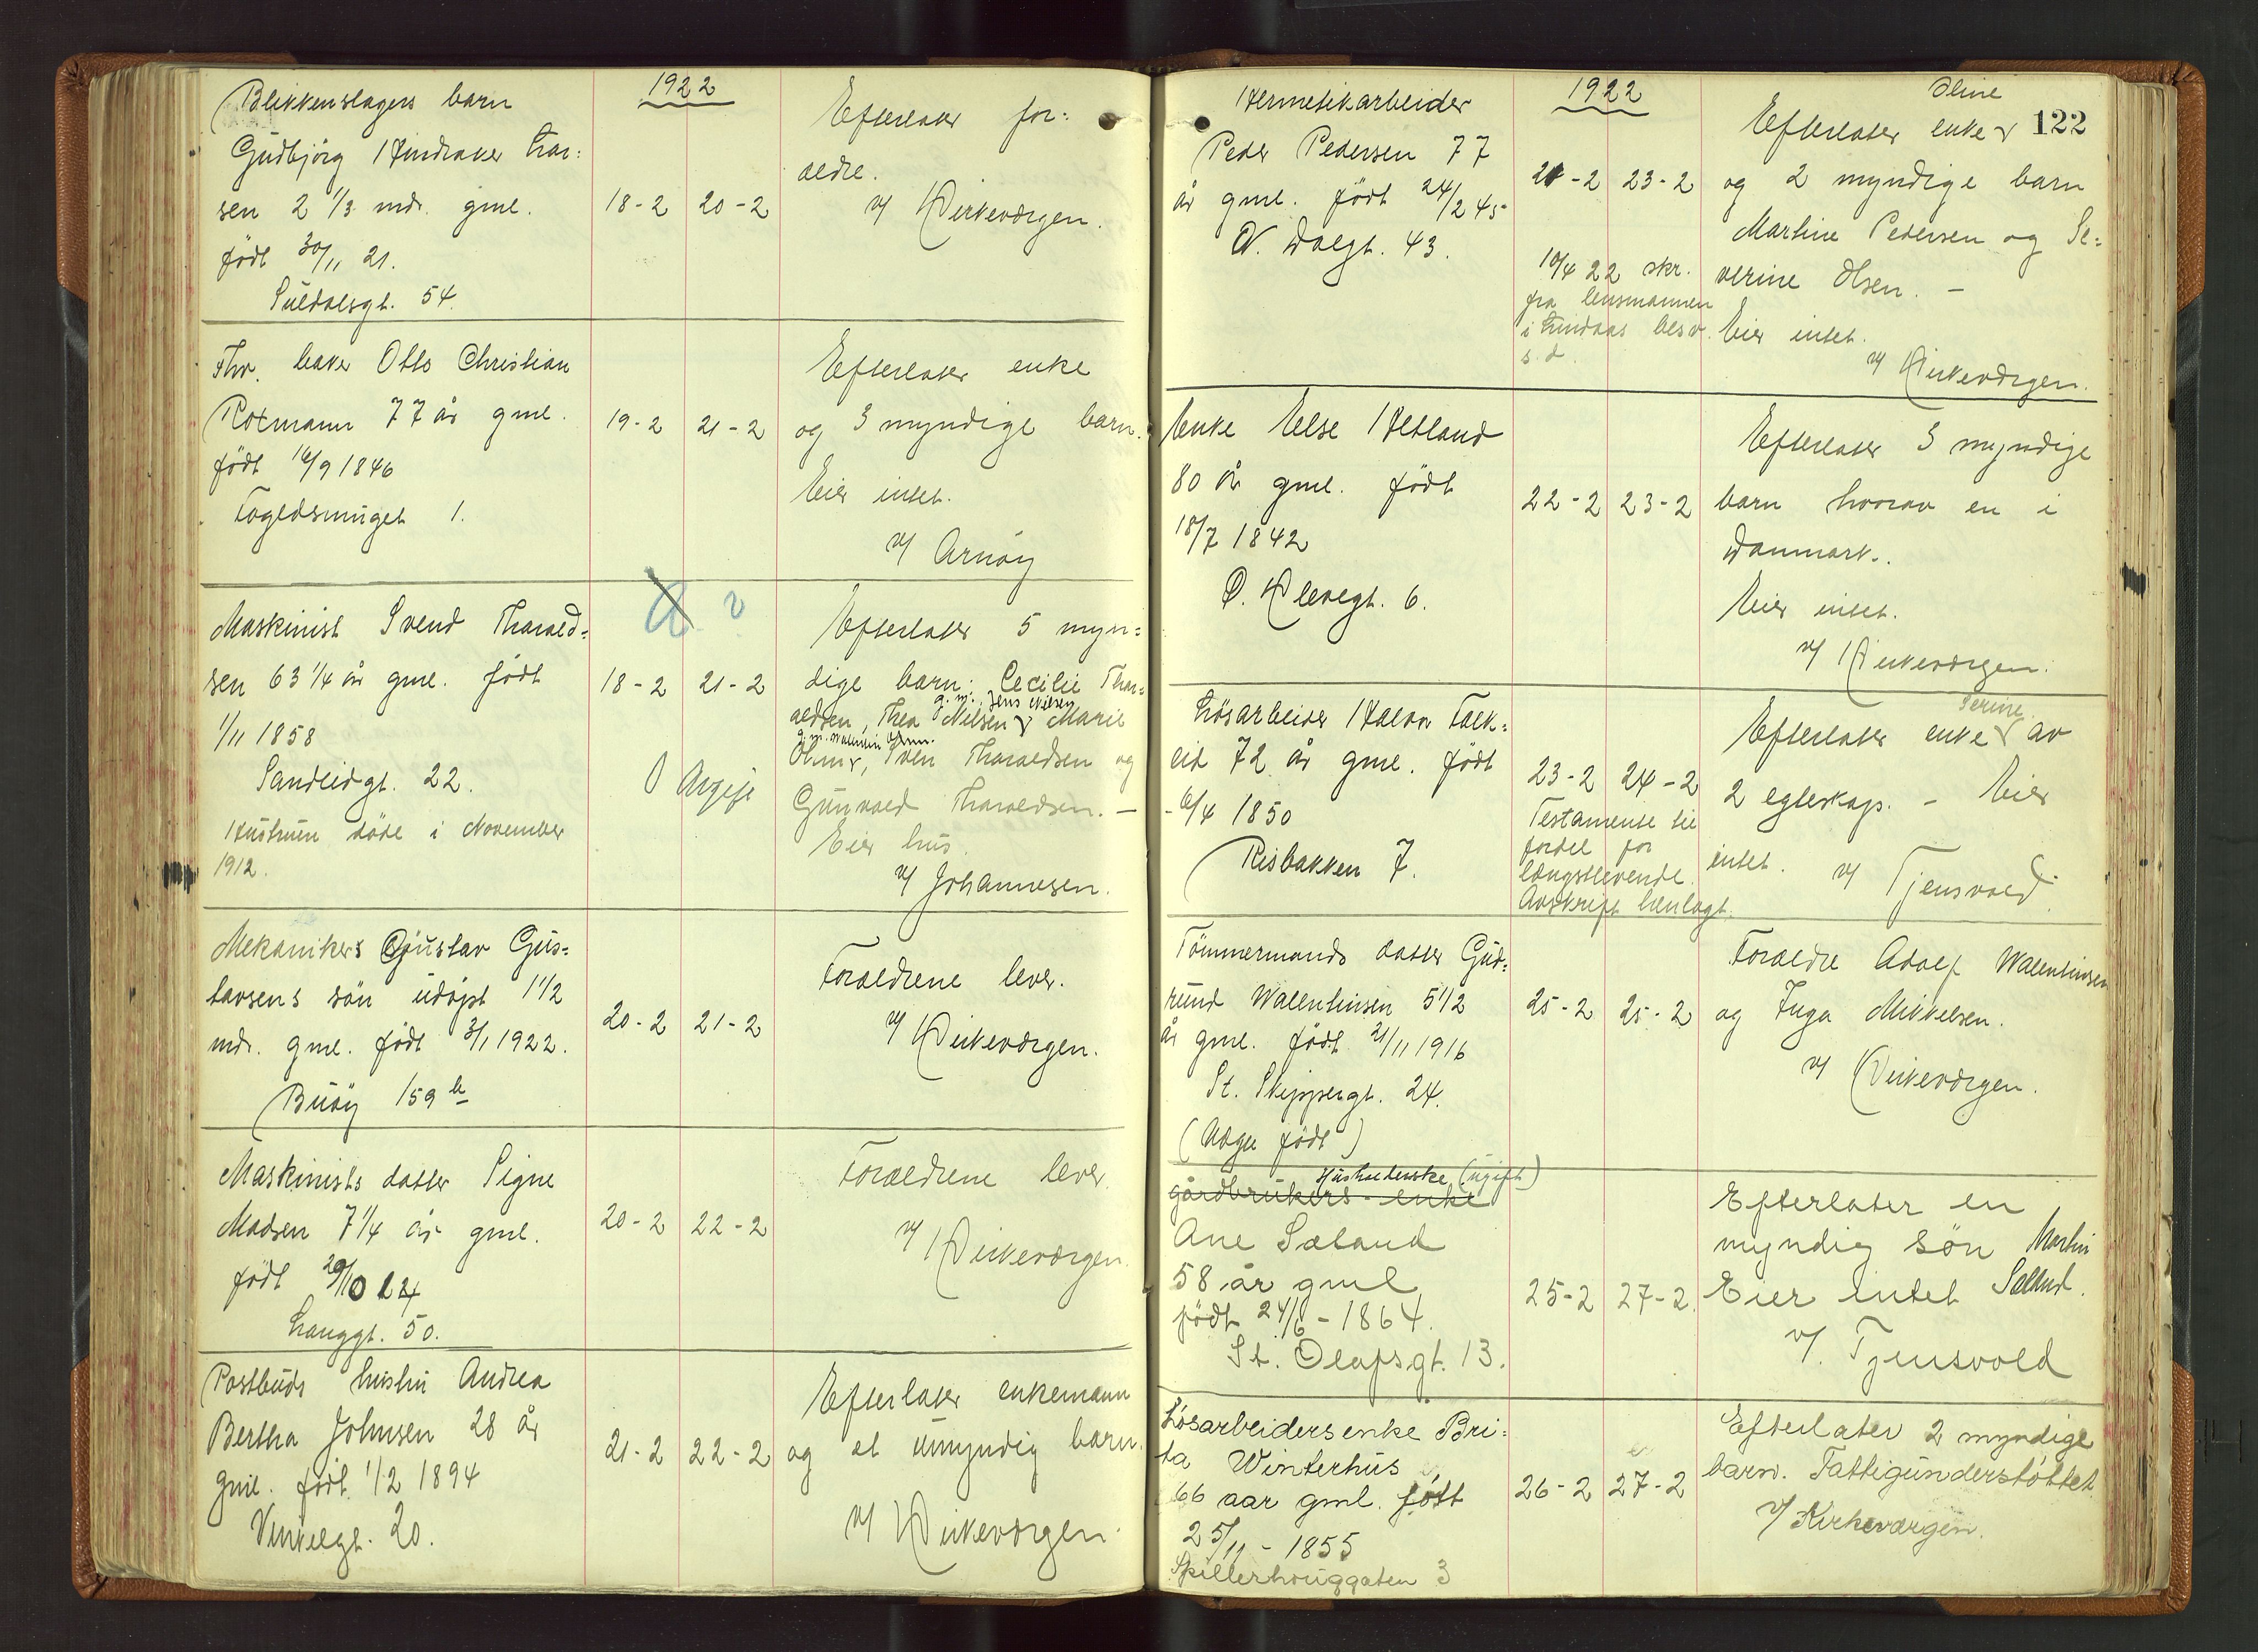 1922
Blikkenslagers barn
Gudbjörg Hindraker Lar=
sen 2 1/3 mdr. gml.
født 30/11 21.
Suldalsgt. 54.
18-2 20-2
Efterlater for=
ældre.
v/ Kirkeværgen.
Fhv. baker Otto Christian
Rotmann 77 år gml.
født 16/9 1846
Fogedsmuget 1.
19-2 21-2
Efterlater enke
og 3 myndige barn.
Eier intet.
v/ Arnöy
Maskinist Svend Tharald=
sen 63 1/4 år gml. født
1/11 1858
Sandeidgt. 22.
Hustruen døde i November
1912.
18-2 21-2
Efterlater 5 myn=
dige barn: Cecilie Thar=
g.m. Jens Nilsen
aldsen, Thea Nilsen, Marie
g.m. Valentin
Sven Tharaldsen og
Gunvald Tharaldsen. -
Eier hus.
v/ Johannesen.
Mekanikers Gustav Gus=
tavsens sön udöpt 1 1/2
mdr. gml. født 3/1 1922.
Buöy 159 b
20-2 21-2
Forældrene lever.
v/ Kirkeværgen.
Maskinists datter Signe
Madsen 7 1/4 år gml.
født 29/10 14
Langgt. 50.
20-2 22-2
Forældrene lever.
v/ Kirkeværgen
Postbuds hustru Andrea
Bertha Johnsen 28 år
gml. født 1/2 1894
Vinkelgt. 20.
21-2 22-2
Efterlater enkemann
og et umyndig barn.
v/ Kirkeværgen
122
1922
Hermetikarbeider
Peder Pedersen 77
år gml. født 24/2 45
N. Dalgt. 43.
21-2 23-2
10/4 22 skr.
fra lensmannen
i Lindaas besv.
s.d.
Oline
Efterlater enke
og 2 myndige barn
Martine Pedersen og Se=
verine Olsen. -
Eier intet.
v/ Kirkeværgen.
Enke Else Hetland
80 år gml. født
18/7 1842
Ö. Klevegt. 6.
22-2 23-2
Efterlater 3 myndige
barn hvorav en i
Danmark.
Eier intet.
v/ Kirkeværgen.
Lösarbeider Halvor Falk=
eid 72 år gml. født
6/4 1850
Risbakken 7.
23-2 24-2
Testamente til
fordel for
længstlevende.
Avskrift henlagt.
Serine
Efterlater enke av
2 egteskap. - Eier
intet. v/ Tjensvold.
Tömmermands datter Gud=
rund Walentinsen 5 1/2
år gml. født 21/11 1916
St. Skippergt. 24.
(Uægte født)
25-2 25-2
Forældre Adolf Walentinsen
og Inga Mikkelsen.
v/ Kirkeværgen.
Husholderske (ugift)
gårdbrukers-enke
Ane Sæland
58 år gml
født 24/6 - 1864.
St. Olafsgt. 13.
25-2 27-2.
Efterlater en
myndig sön Martin
Eier intet Sæland.
v/. Tjensvold
Lösarbeidersenke Bri=
ta Winterhus
66 aar gml. født
25/11 - 1855
Spillerhauggaten 3
26-2 27-2
Efterlater 2 myndige
barn. Fattigunderstöttet.
v/ Kirkeværgen.